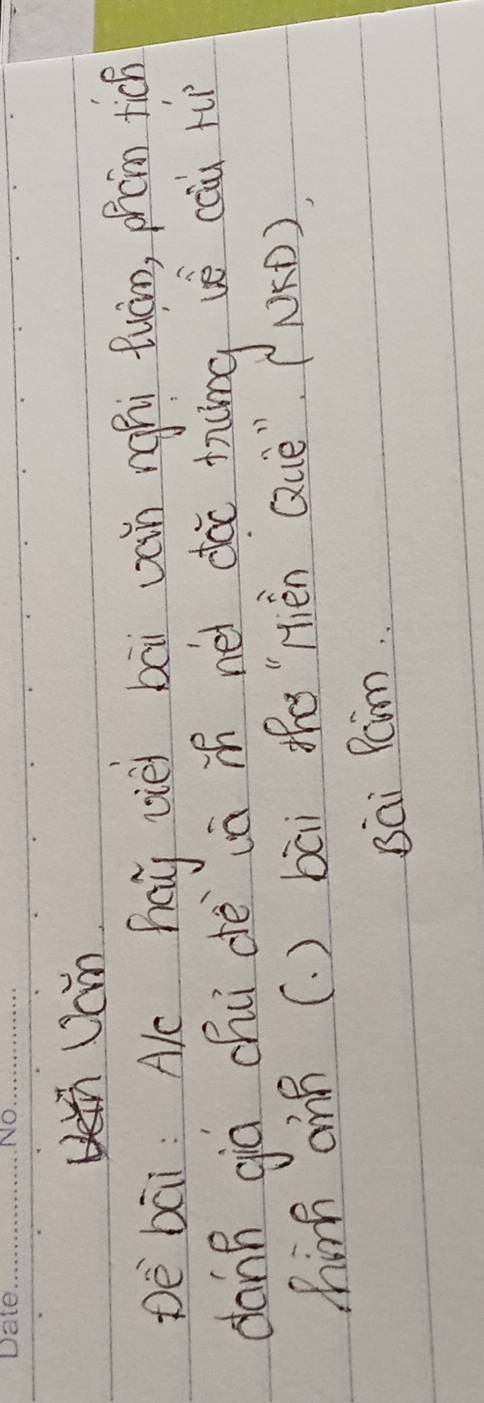 Date............No............
Văn
Đề bài: A/c hãy viết bài văn nghị luận, phân tích
đánh giá chủ đề và 1 nét đặc trưng về cấu tứ
hình ảnh (.) bài thơ "Miền Quê". (NKD).
Bài làm..